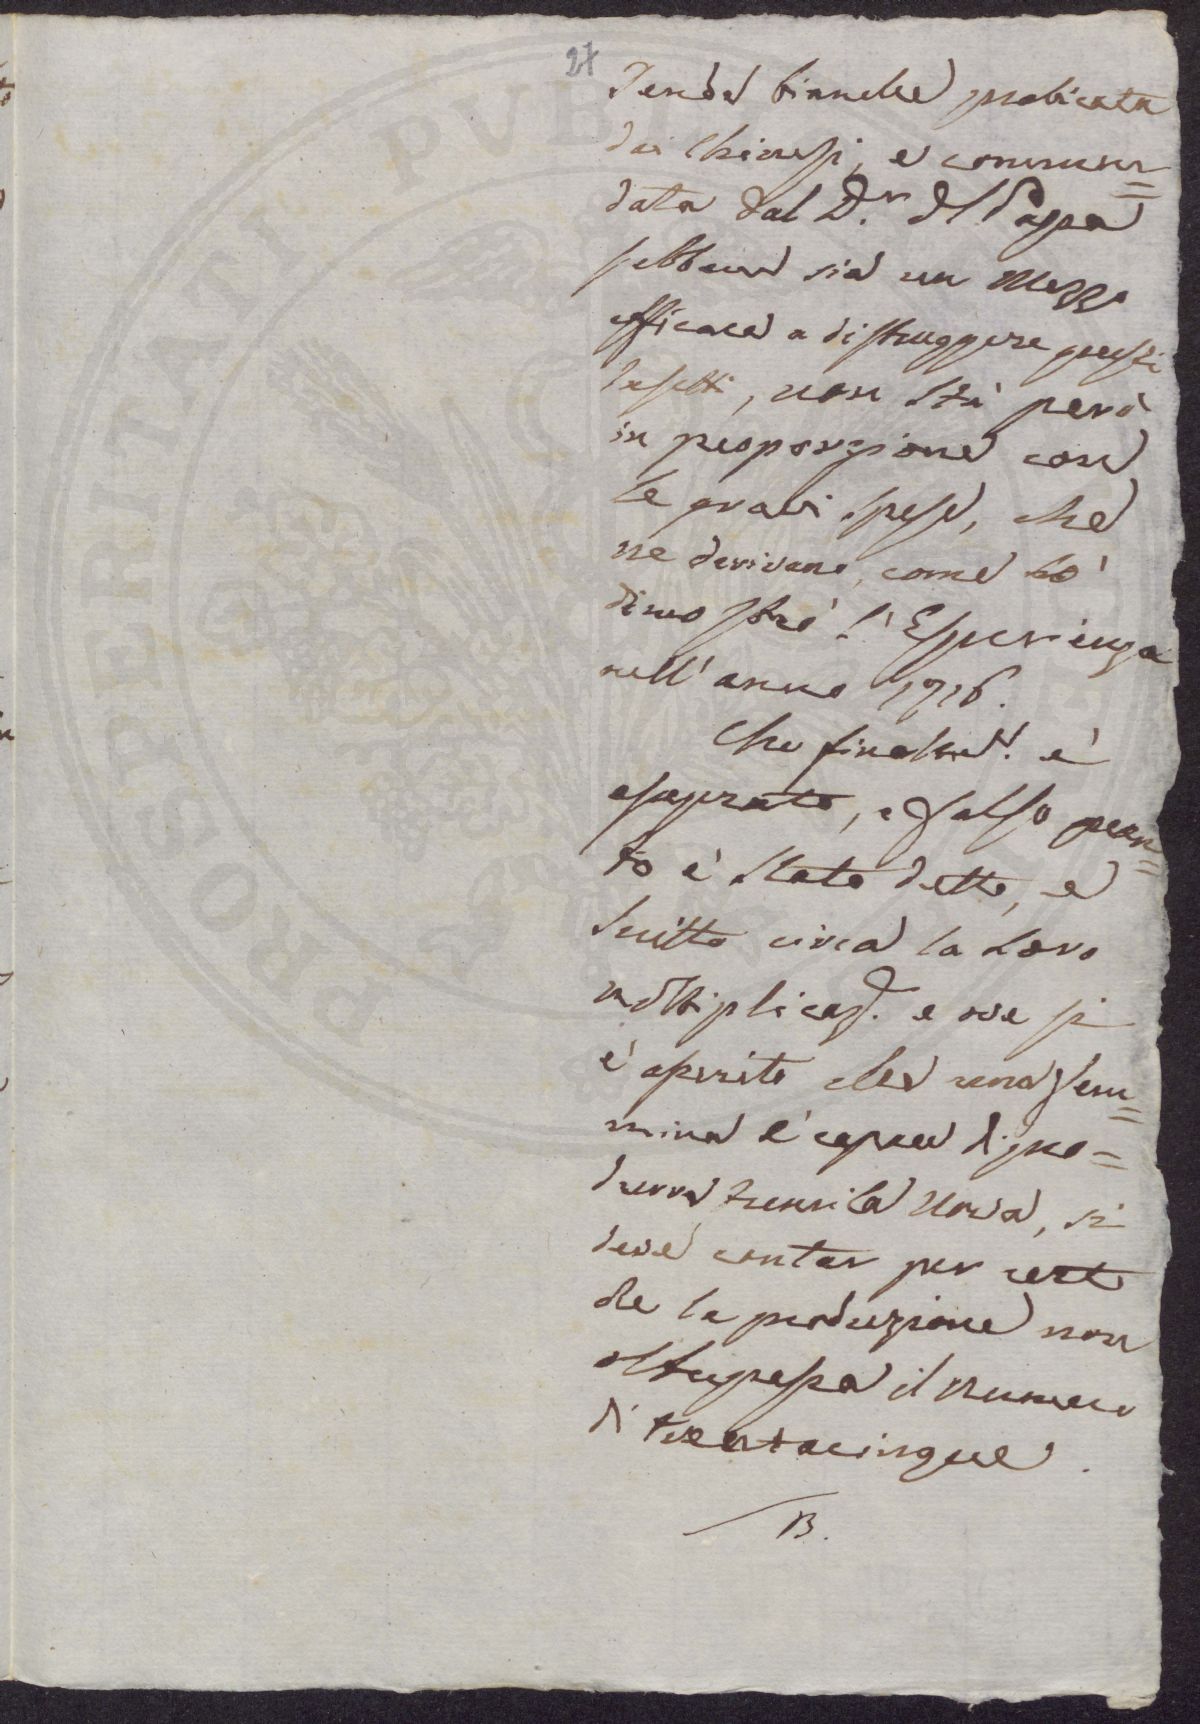 27
Tende bianche praticata
dai Chinesi, e commen=
data dal D.r del Pappa
sebbene sia un mezzo
efficace a distruggere questi
Insetti, non stà però
in proporzione con
le gravi spese, che
ne derivano, come lo
dimostrò l'Esperienza
nell'anno 1716.
Che finalmte. è
esagerato, e falso quan=
to è stato detto, e
scritto circa la loro
moltiplicaz. e ove si
è asserito che una fem=
mina è capace di pro=
durre tremila Uova, si
deve contar per certo
che la produzione non
oltrepassa il numero
di trentacinque.
B.
PROSPERITATI PVBL